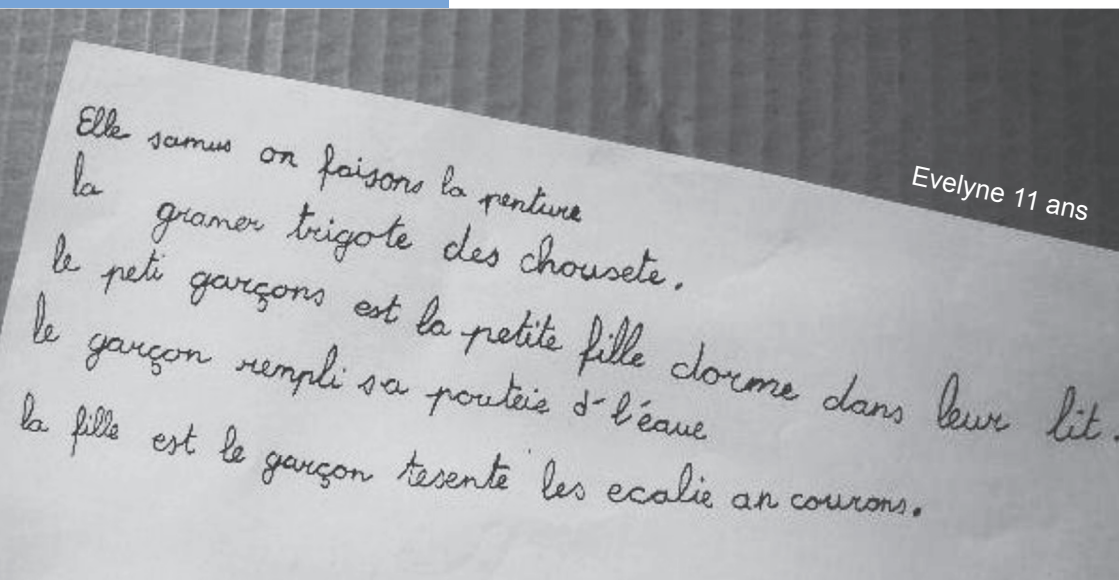 Elle samus on faisons la penture
la gramer trigote des chousete.
le peti garçons est la petite fille dorme dans leur lit.
le garçon rempli sa pouteie d'l'éaue
la fille est le garçon tesente les ecalie an courons.
Evelyne 11 ans